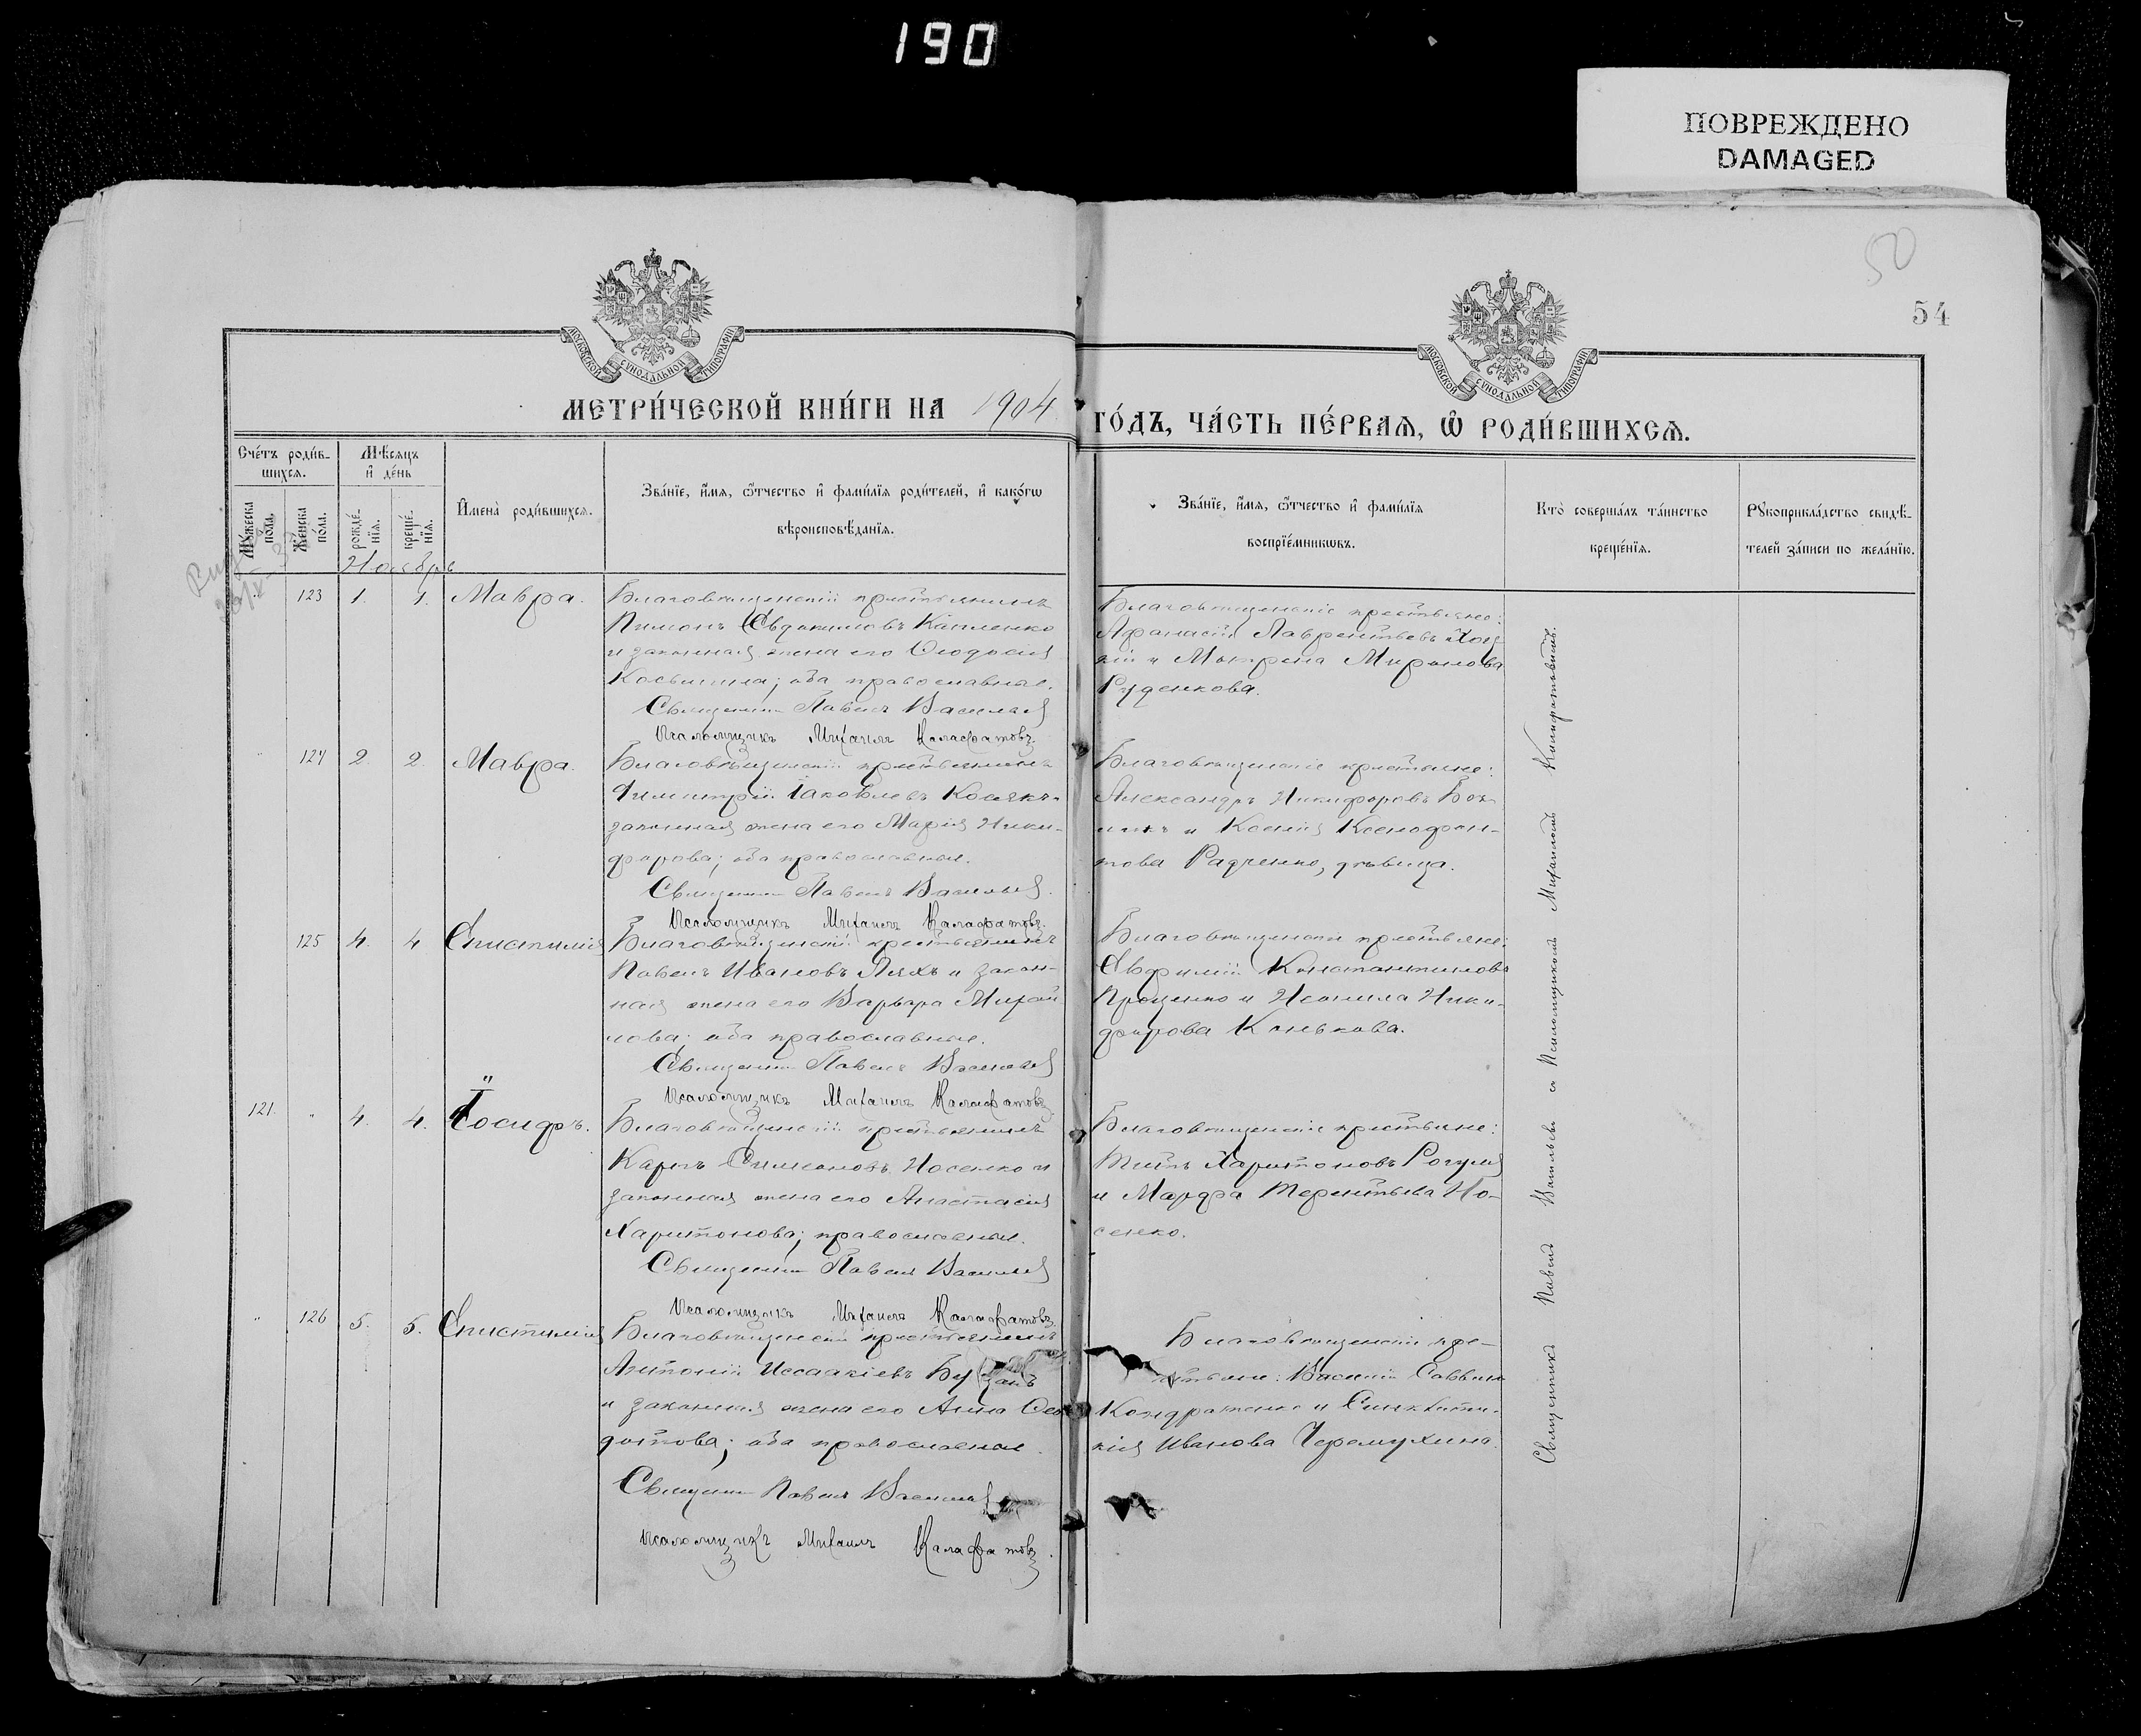 190
ПОВРЕЖДЕНО
DAMAGED
50
54
МОСКОВСКОЙ СѴНОДАЛЬНОЙ ТИПОГРАФІИ
МОСКОВСКОЙ СѴНОДАЛЬНОЙ ТИПОГРАФІИ
МЕТРИ́ЧЕСКОЙ КНИ́ГИ НА 1904
ГО́ДЪ, ЧА́СТЬ ПЕ́РВАѦ, Ѡ҆ РОДИ́ВШИХСѦ.
Сче́тъ роди́в-
шихсѧ.
Мѣ́сѧцъ
и҆ де́нь
Мꙋ́жеска
по́ла.
Же́нска
по́ла.
рожде́-
нїѧ.
креще́-
нїѧ.
И҆мена̀ роди́вшихсѧ.
Зва́нїе, и҆́мѧ, ѻ҆́тчество и҆ фами́лїѧ роди́телей, и҆ како́гѡ
вѣроисповѣ́данїѧ.
Зва́нїе, и҆́мѧ, ѻ҆́тчество и҆ фами́лїѧ
воспрїе́мникѡвъ.
Кто̀ соверша́лъ та́инство
креще́нїѧ.
Рꙋкоприкла́дство свидѣ́-
телей за́писи по жела́нїю.
Ноябрь
123 1. 1. Мавра.
Благовѣщенскій крестьянинъ
Пимонъ Евдокимовъ Капленко
и законная жена его Ѳеодосія
Косьмина; оба православные.
Священникъ Павелъ Васильев
Псаломщикъ Михаилъ Калафатовъ.
Благовѣщенскіе крестьяне:
Афанасій Лаврентьевъ
и Матрена Миронова
Руденкова.
124 2. 2. Мавра.
Благовѣщенскій крестьянинъ
Димитрій Іаковлевъ Косякъ
законная жена его Марія Ники-
форова; оба православные.
Священникъ Павелъ Васильев
Псаломщикъ Михаилъ Калафатовъ.
Благовѣщенскіе крестьяне:
Александръ Никифоровъ
и Ксенія Ксенофон-
това Радченко, дѣвица.
125 4. 4 Епистимія
Благовѣщенскій крестьянинъ
Павелъ Ивановъ Ляхъ и закон-
ная жена его Варвара Михаи-
лова; оба православные.
Священникъ Павелъ Васильев
Псаломщикъ Михаилъ Калафатовъ
Благовѣщенскіе крестьяне:
Евфимій Константиновъ
Проценко и Неонила Ники-
форова Конькова.
121. " 4. 4. Іосифъ.
Благовѣщенскій крестьянинъ
Карпъ Симеоновъ Носенко и
законная жена его Анастасія
Харитонова; православные.
Священникъ Павелъ Васильев
Псаломщикъ Михаилъ Калафатовъ.
Благовѣщенскіе крестьяне:
Титъ Харитоновъ Рогуля
и Марфа Терентьева Но-
сенко.
" 126 5. 5. Епистимія
Благовѣщенскій крестьянинъ
Антоній Иссаакіевъ
и законная жена его Анна Ѳео-
дотова; оба православные.
Священникъ Павелъ Васильев
Псаломщикъ Михаилъ Калафатовъ.
Благовѣщенскіе кре-
стьяне: Василій Саввинъ
Кондратенко и Синклити-
кія Иванова Черемухина.
Священникъ Павелъ Васильевъ съ Псаломщикомъ Михаиломъ Калафатовымъ.